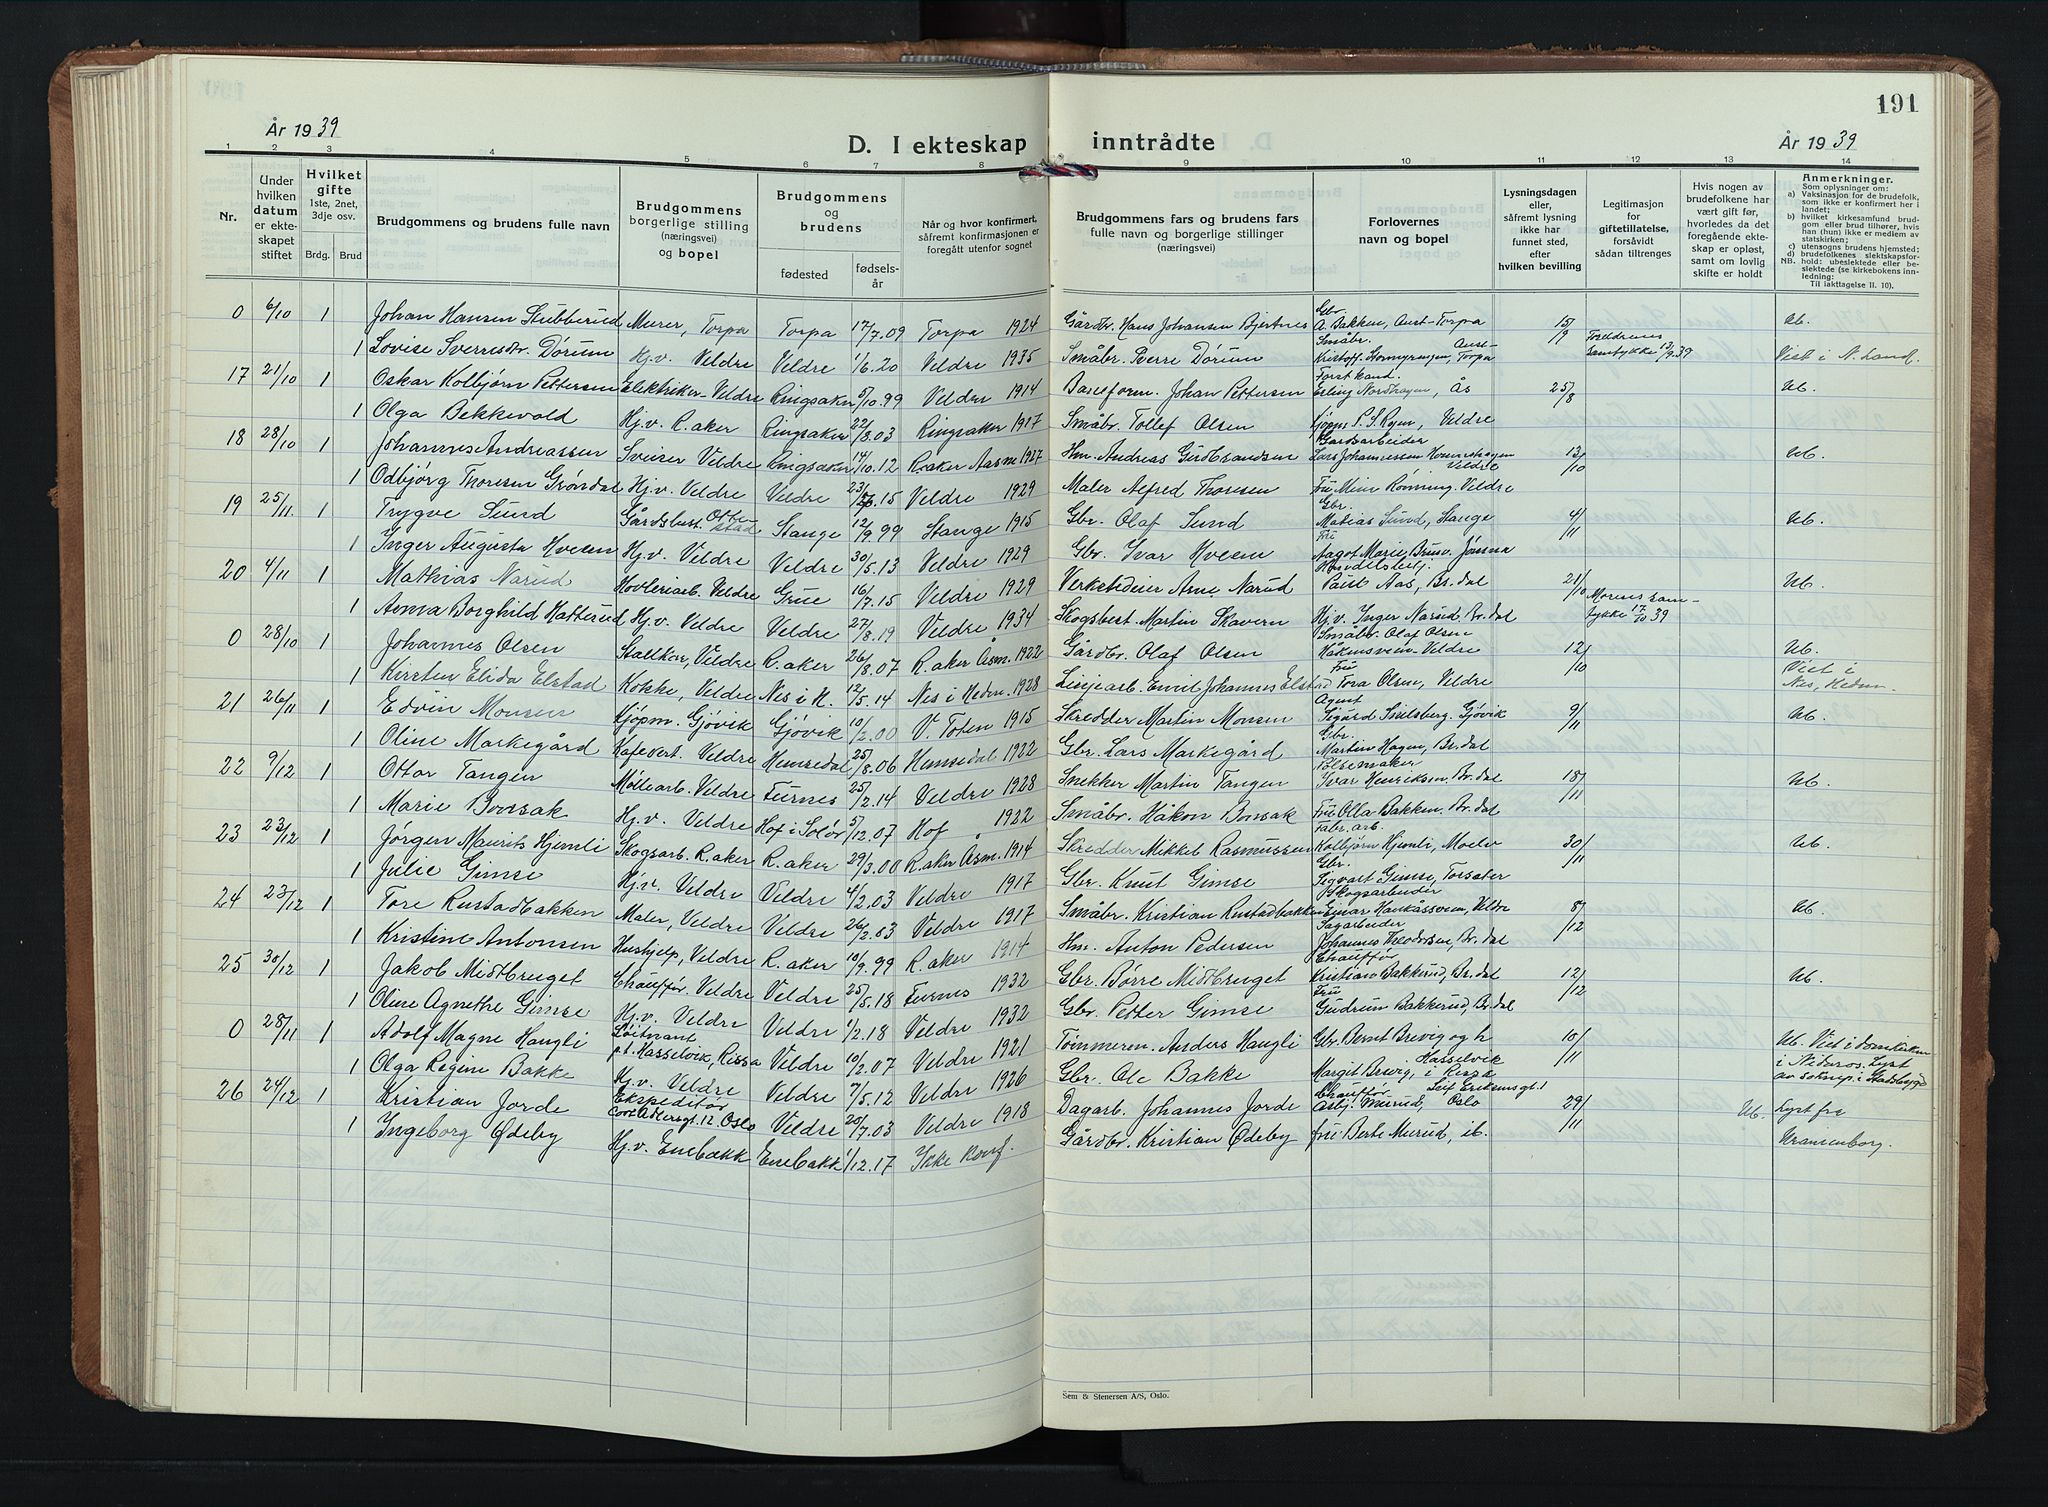 191
År 1939
D. I ekteskap inntrådte
År 1939
1 2 3 4 5 6 7 8 9 10 11 12 13 14
Nr.
Under hvilken datum er ekteskapet stiftet
Hvilket gifte 1ste, 2net, 3dje osv.
Brdg. Brud
Brudgommens og brudens fulle navn
Brudgommens borgerlige stilling (næringsvei) og bopel
Brudgommens og brudens
fødested
fødselsår
Når og hvor konfirmert, såfremt konfirmasjonen er foregått utenfor sognet
Brudgommens fars og brudens fars fulle navn og borgerlige stillinger (næringsvei)
Forlovernes navn og bopel
Lysningsdagen eller, såfremt lysning ikke har funnet sted, efter hvilken bevilling
Legitimasjon for giftetillatelse, forsåvidt sådan tiltrenges
Hvis nogen av brudefolkene har vært gift før, hvorledes da det foregående ekteskap er opløst, samt om lovlig skifte er holdt
Anmerkninger.
Som oplysninger om:
a) Vaksinasjon for de brudefolk, som ikke er konfirmert her i landet;
b) hvilket kirkesamfund brudgom eller brud tilhører, hvis han (hun) ikke er medlem av statskirken;
c) utensogns brudens hjemsted;
d) brudefolkenes slektskapsforhold: ubeslektede eller beslektede (se kirkebokens innledning:
NB.
Til iakttagelse II. 10).
0 6/10 1 Johan Hansen Stubberud Murer, Torpa Torpa 17/7.09 Torpa 1924 Gårdbr. Hans Johansen Bjertnes Gbr. A. Bakken, Aust-Torpa 15/9 Foreldrenes samtykke 13/9.39 Ub.
1 Lovise Sverresdr. Dørum Hj.v. Veldre Veldre 1/6.20 Veldre 1935 Småbr. Sverre Dørum Småbr. Kristoff. Stormyrengen, Aust-Torpa Viet i N. Land.
17 21/10 1 Oskar Kolbjørn Pettersen Elektriker Veldre Ringsaker 5/10.99 Veldre 1914 Baneform. Johan Pettersen Forstkand. Erling Nordhagen, Ås 25/8 Ub.
1 Olga Bekkevold Hj.v. R.aker Ringsaker 22/8.03 Ringsaker 1917 Småbr. Tollef Olsen Kjøpm. P. S. Røjen, Veldre
18 28/10 1 Johannes Andreassen Sveiser Veldre Ringsaker 14/10.12 R.aker Aasm. 1927 Hm. Andreas Gudbrandsen Gardsarbeider Lars Johannessen Veldre 13/10 Ub.
1 Odbjørg Thoresen Grøndal Hj.v. Veldre Veldre 23/ .15 Veldre 1929 Maler Alfred Thoresen Fru Mimi Rønning, Veldre
19 25/11 1 Trygve Sund Gårdsbest. Ottestad Stange 12/9.99 Stange 1915 Gbr. Olaf Sund Gbr. Matias Sund, Stange 4/11 Ub.
1 Inger Augusta Hveem Hj.v. Veldre Veldre 30/5.13 Veldre 1929 Gbr. Ivar Hveem Fru Aagot Marie Brusv. Jønna
20 4/11 1 Mathias Narud Høvleriarb. Veldre Grue 16/7.15 Veldre 1929 Verkstedeier Arne Narud Handelsbestj. Paul Aas, Br.dal 21/10 Morens samtykke 17/10 39 Ub.
1 Anna Borghild Hatterud Hj.v. Veldre Veldre 27/8.19 Veldre 1934 Skogsbest. Martin Skavern Hj.v. Inger Narud, Br.dal
0 28/10 1 Johannes Olsen Stallkar, Veldre R.aker 26/8.07 R.aker Åsm. 1922 Gårdbr. Olaf Olsen Småbr. Olaf Olsen Håkensveen Veldre 12/10 Ub.
1 Kirsten Elida Elstad Kokke, Veldre Nes i H. 12/5.14 Nes i Hedm. 1928 Linjearb. Emil Johannes Elstad Fru Tora Olsen, Veldre Viet i Nes, Hedm.
21 26/11 1 Edvin Monsen Kjøpm. Gjøvik Gjøvik 10/2.00 V. Toten 1915 Skredder Martin Monsen Agent Sigurd Sælsberg. Gjøvik 9/11 Ub.
1 Oline Markegård Kafevert. Veldre Hemsedal 25/8.06 Hemsedal 1922 Gbr. Lars Markegård Gbr. Martin Hagen, Br.dal
22 9/12 1 Ottar Tangen Møllearb. Veldre Furnes 25/2.14 Veldre 1928 Snekker Martin Tangen Pølsemaker Ivar Henriksen. Br.dal 18/11 Ub.
1 Marie Bonsak Hj.v. Veldre Hof i Solør 5/12.07 Hof 1922 Småbr. Håkon Bonsak Fru Olla Bakken. Br.dal
23 23/12 1 Jørgen Maurits Hjemli Skogsarb. R.aker R.aker 29/3.00 R.aker Åsm. 1914 Skredder Mikkel Rasmussen Fabr.arb. Kolbjørn Hjemli, Moelv 30/11 Ub.
1 Julie Gimse Hj.v. Veldre Veldre 4/2.03 Veldre 1917 Gbr. Knut Gimse Gbr. Sigvart Gimse, Torsæter
24 23/12 1 Tore Rustadbakken Maler, Veldre Veldre 26/2.03 Veldre 1917 Småbr. Kristian Rustadbakken Skogsarbeider Einar Haukåsveen, Veldre 8/12 Ub.
1 Kristine Antonsen Hushjelp, Veldre R.aker 10/9.99 R.aker 1914 Hm. Anton Pedersen Sagarbeider Johannes Theodorsen, Br.dal
25 30/12 1 Jakob Midtbruget Chauffør. Veldre Veldre 25/5.18 Furnes 1932 Gbr. Børre Midtbruget Chauffør Kristian Bakkerud, Br.dal 12/12 Ub.
1 Oline Agnethe Gimse Hj.v. Veldre Veldre 1/2.18 Veldre 1932 Gbr. Petter Gimse Fru Gudrun Bakkerud, Br.dal
0 28/11 1 Adolf Magne Haugli Løitnant p.t. Hasselvik, Rissa Veldre 10/2.07 Veldre 1921 Tømmerm. Anders Haugli Gbr. Bernt Brevig og h 10/11 Ub. Viet i Domkirken
1 Olga Regine Bakke Hj.v. Veldre Veldre 7/5.12 Veldre 1926 Gbr. Ole Bakke Margit Brevig, Hasselvik i Rissa i Nidaros. Lyst av soknep. i Stadsbygd
26 24/12 1 Kristian Jorde Ekspeditør Cort Adlersgt. 12. Oslo Veldre 20/7.03 Veldre 1918 Dagarb. Johannes Jorde Chauffør Asbj. Murud, Leif Eriksensgt. 1 Oslo 29/11 Ub. Lyst fra
1 Ingeborg Ødeby Hj.v. Enebakk Enebakk 1/12.17 Ikke konf. Gårdbr. Kristian Ødeby fru Berte Murud, ib. Uranienborg.
Sem & Stenersen A/S, Oslo.